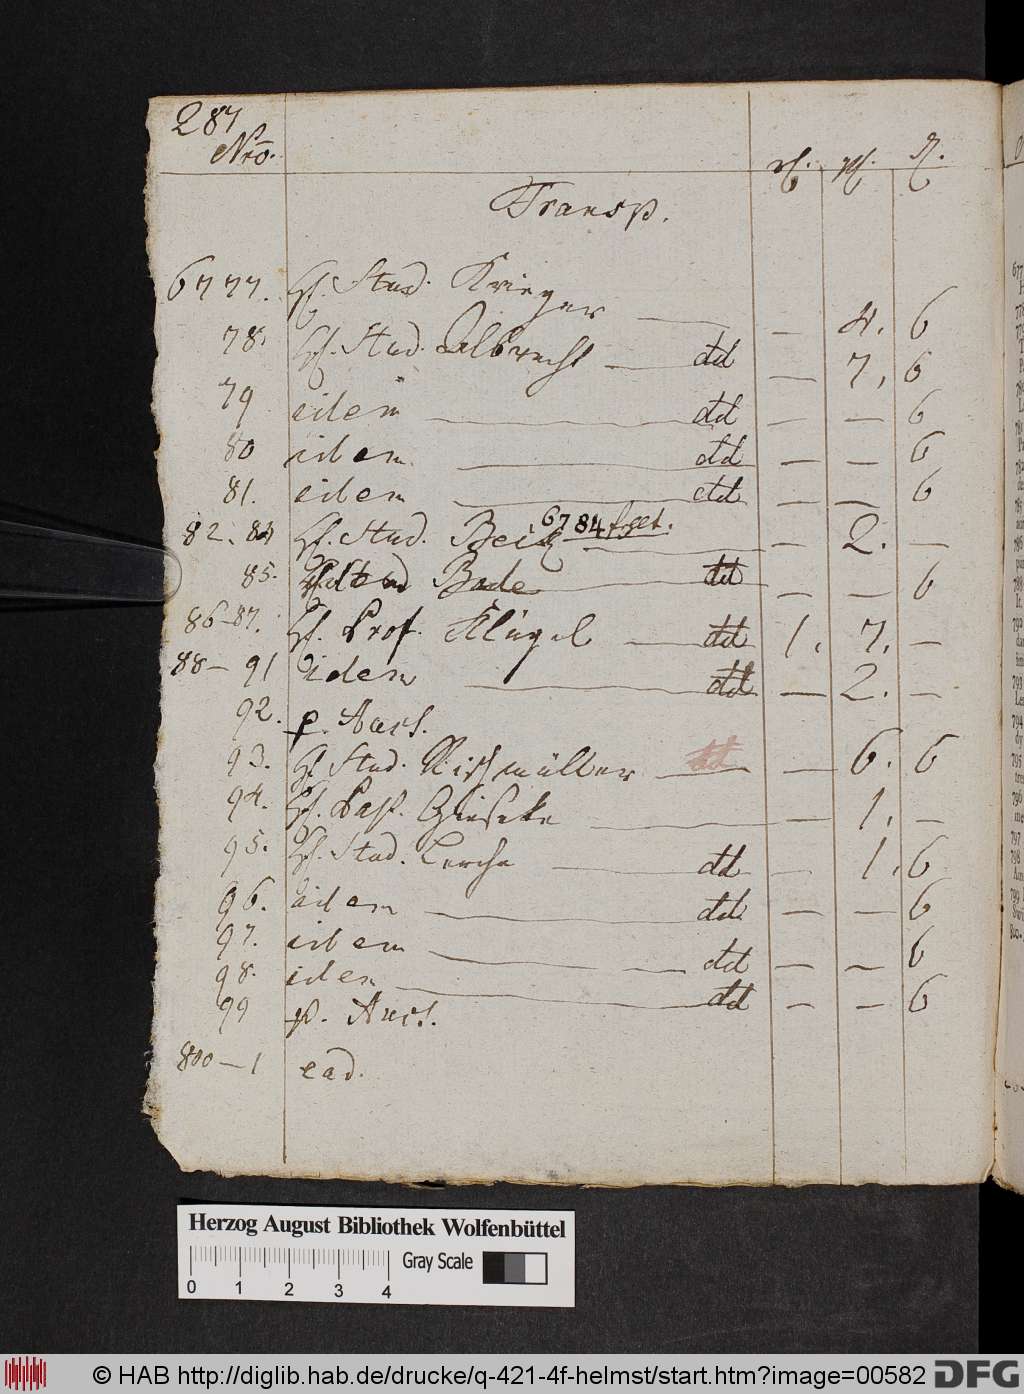 287
Nro.
Transp.
6777. H. Stud. Krieger — — 4. 6
78. H. Stud. Albrecht — dd — 7. 6
79 eidem — dd — — 6
80 eidem — dd — — 6
81. eidem — dd — — 6
6784 fehlt.
82. 84 H. Stud. Beck — — 2. —
85. Bode — dd — — 6
86-87. H. Prof. Klügel — dd 1. 7. —
88 - 91 idem — dd — 2. —
92. p. Auct.
93. H. Stud. Rischmüller — dd — 6. 6
94. H. Past. Gieseke — — 1. —
95. H. Stud. Lerche — dd — 1. 6
96. eidem — dd — — 6
97. eidem — dd — — 6
98. eidem — dd — — 6
99 p. Auct.
800 - 1 ead.
Herzog August Bibliothek Wolfenbüttel
Gray Scale
0 1 2 3 4
© HAB http://diglib.hab.de/drucke/q-421-4f-helmst/start.htm?image=00582 DFG